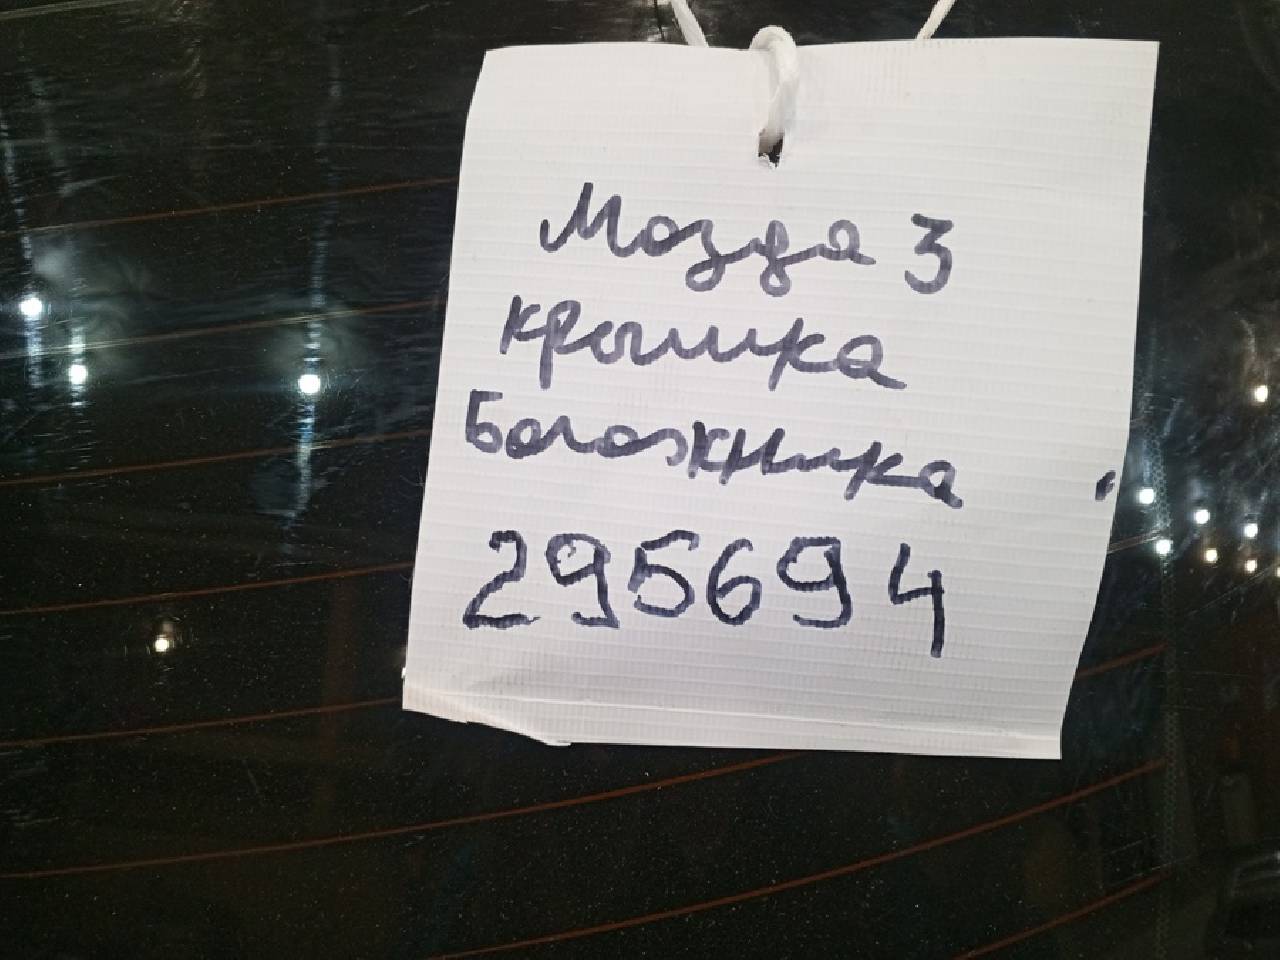 Мозда 3
крышка
Богожника
295694